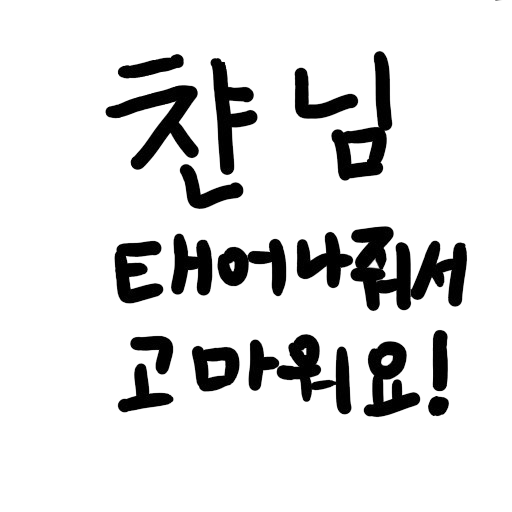 챤님
태어나줘서
고마워요!